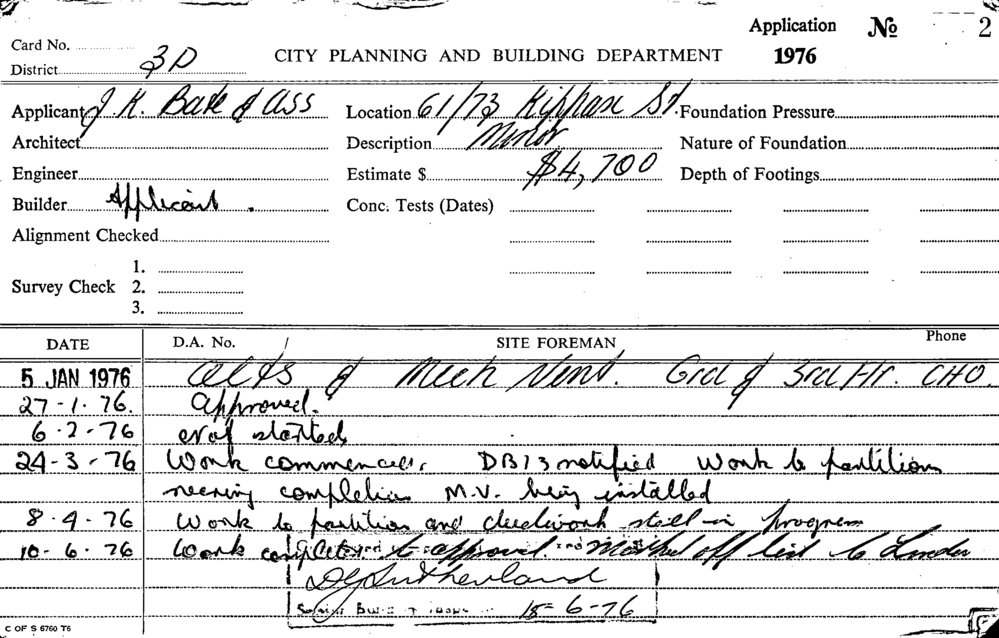 Application No 2
Card No.
CITY PLANNING AND BUILDING DEPARTMENT 1976
District 3D
Applicant J. K. Bate & Ass Location 61/73 Kippax St. Foundation Pressure
Architect Description Minor Nature of Foundation
Engineer Estimate $ $4,700 Depth of Footings
Builder Applicant. Conc. Tests (Dates)
Alignment Checked
1.
Survey Check 2.
3.
DATE D.A. No. SITE FOREMAN Phone
5 JAN 1976 Alts & Mech Vent. Grd & 3rd Flr. CHO.
27-1-76. Approved.
6-2-76 not started
24-3-76 Work commenced. DB13 notified Work to partition
nearing completion M.V. being installed
8-4-76 Work to partition and ductwork still in progress
10-6-76 Work completed to approval Marked off list to
D G Sutherland
18-6-76
C OF S 6760 T6